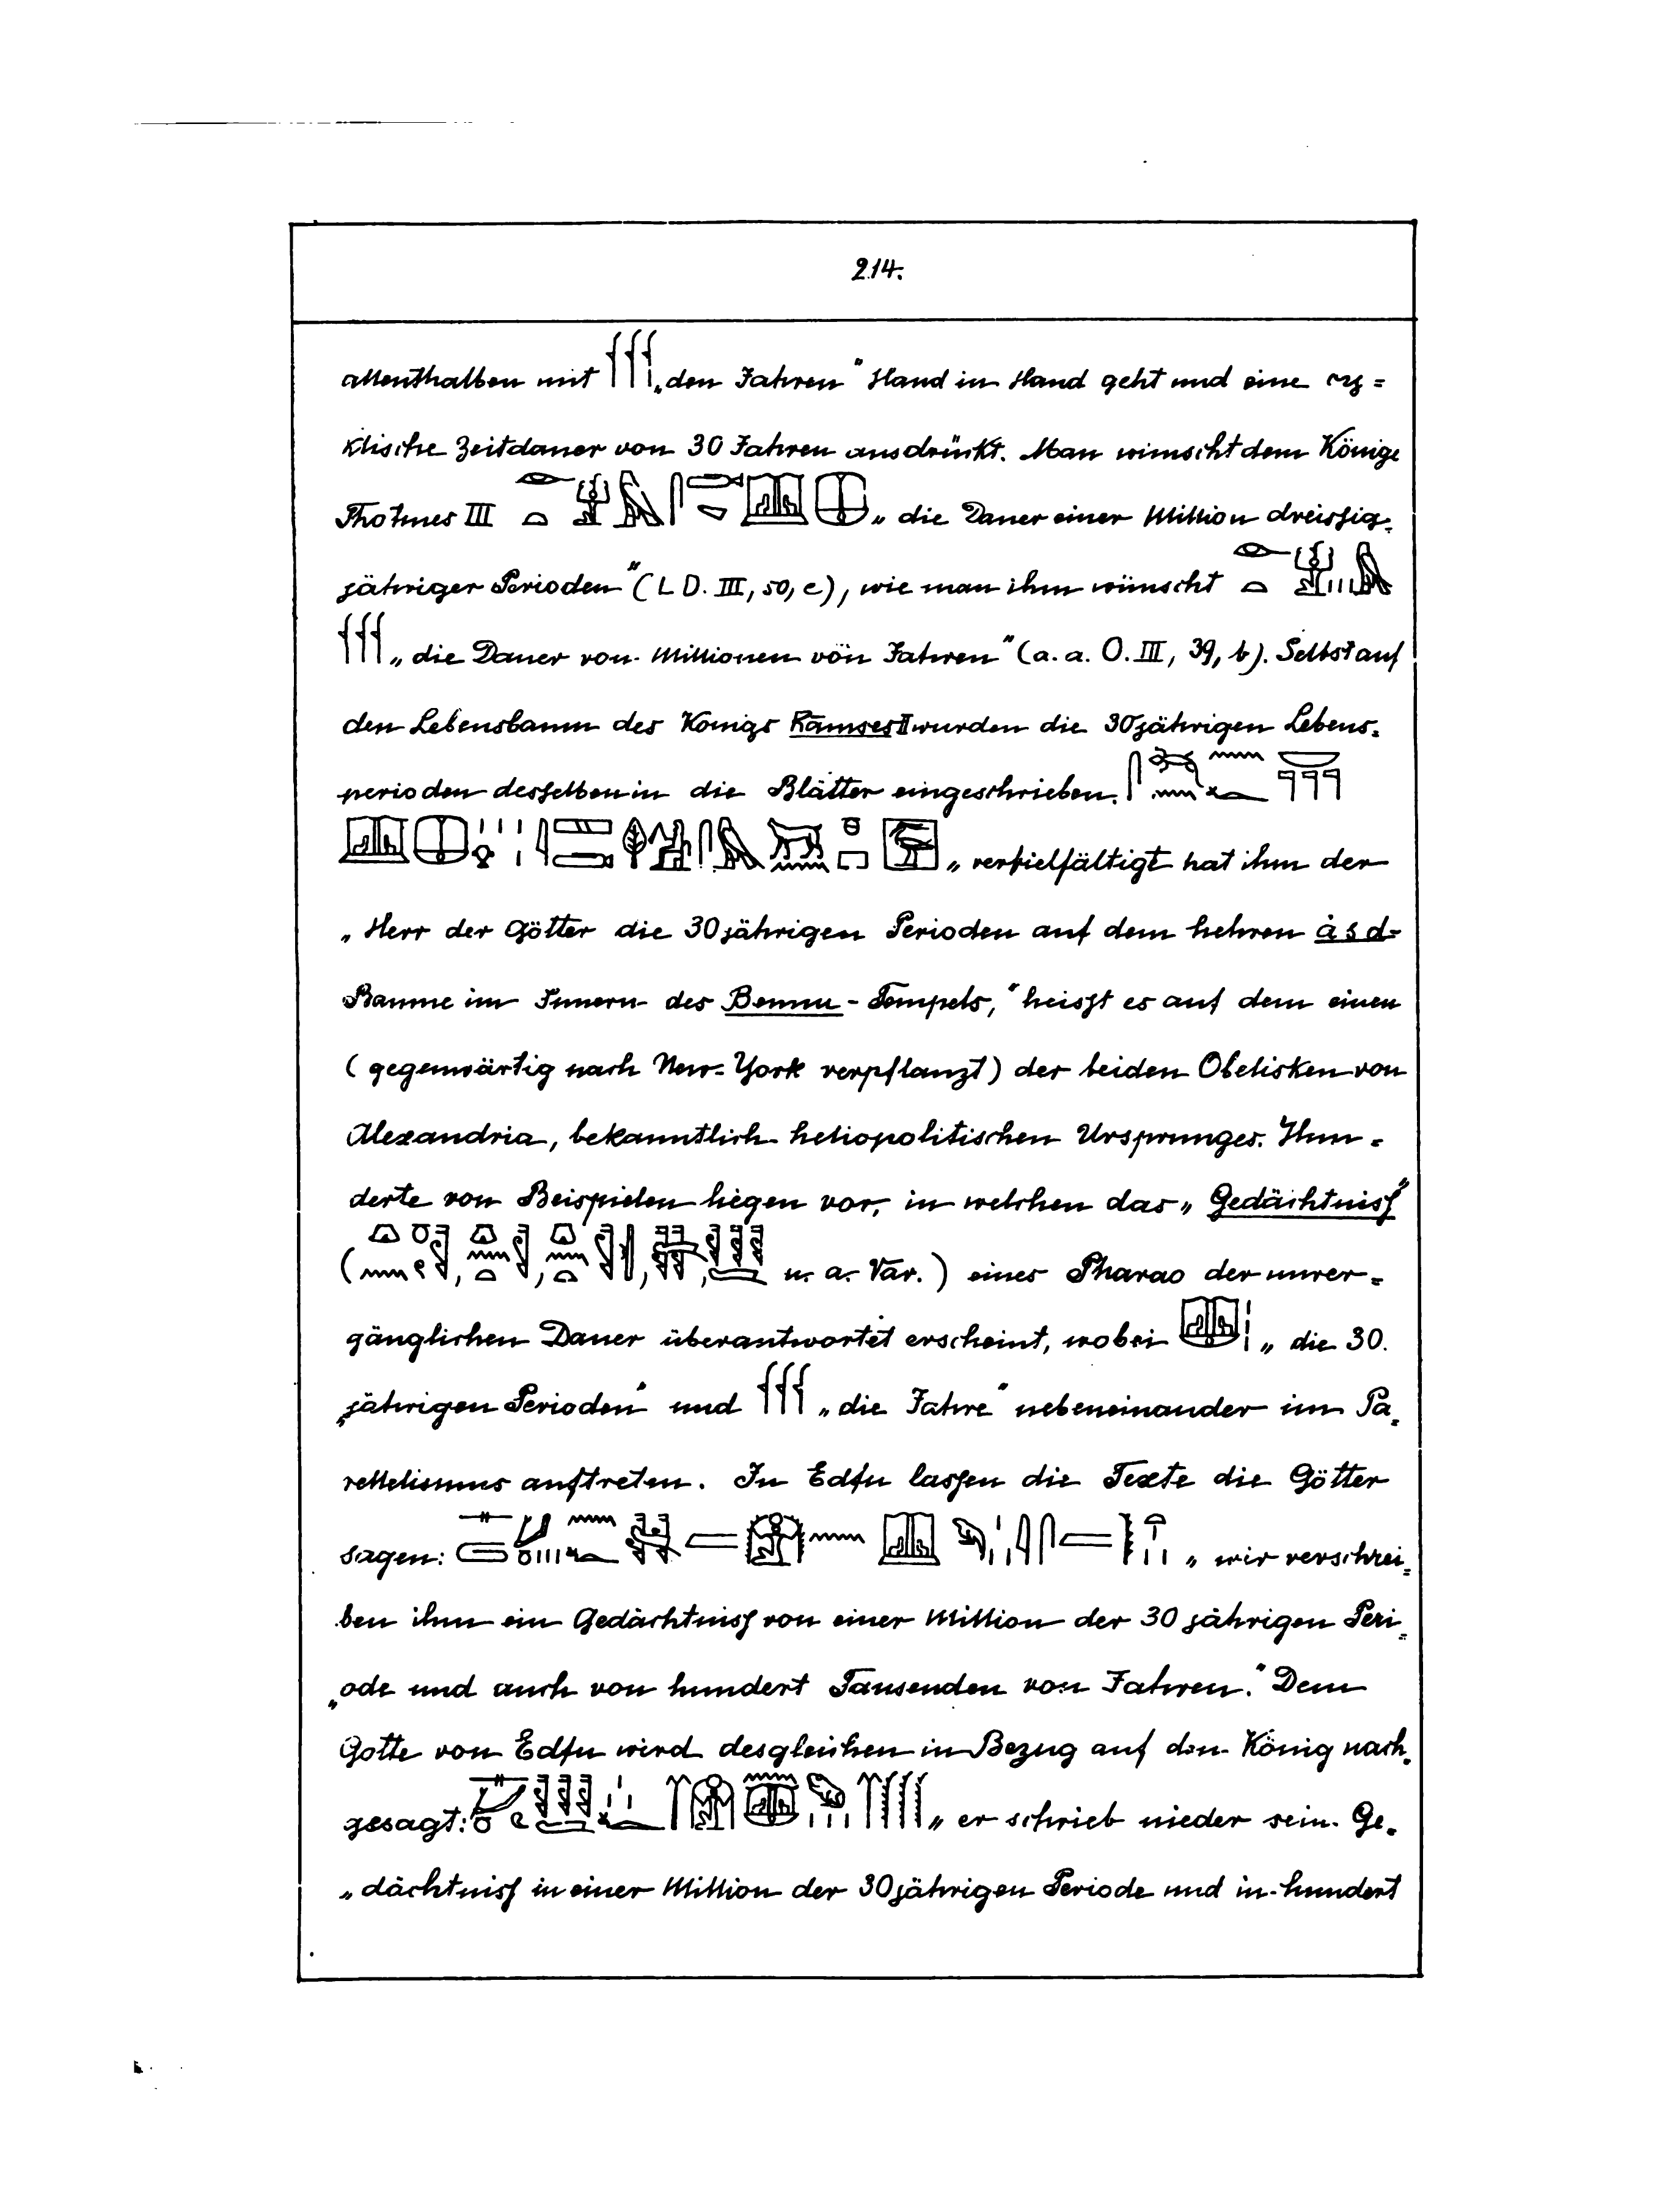 214.
allenthalben mit „den Jahren" Hand in Hand geht und eine cy=
klische Zeitdauer von 30 Jahren ausdrückt. Man wünscht dem Könige
Thotmes III „die Dauer einer Million dreissig=
jähriger Perioden" (L D. III, 50, c), wie man ihm wünscht
„die Dauer von Millionen von Jahren" (a. a. O. III, 39, b). Selbst auf
den Lebensbaum des Königs Ramses II wurden die 30jährigen Lebens=
perioden desselben in die Blätter eingeschrieben.
„vervielfältigt hat ihm der
„Herr der Götter die 30jährigen Perioden auf dem hehren àsd=
Baume im Innern des Bennu-Tempels," heisst es auf dem einen
(gegenwärtig nach New-York verpflanzt) der beiden Obelisken von
Alexandria, bekanntlich heliopolitischen Ursprunges. Hun=
derte von Beispielen liegen vor, in welchen das „Gedächtniss"
( , , , , , u. a. Var.) eines Pharao der unver=
gänglichen Dauer überantwortet erscheint, wobei „die 30.
„jährigen Perioden" und „die Jahre" nebeneinander im Pa=
rallelismus auftreten. In Edfu lassen die Texte die Götter
sagen: „wir verschrei=
ben ihm ein Gedächtniss von einer Million der 30jährigen Peri=
„ode und auch von hundert Tausenden von Jahren." Dem
Gotte von Edfu wird desgleichen in Bezug auf den König nach=
gesagt: „er schrieb nieder sein Ge=
„dächtniss in einer Million der 30jährigen Periode und in hundert